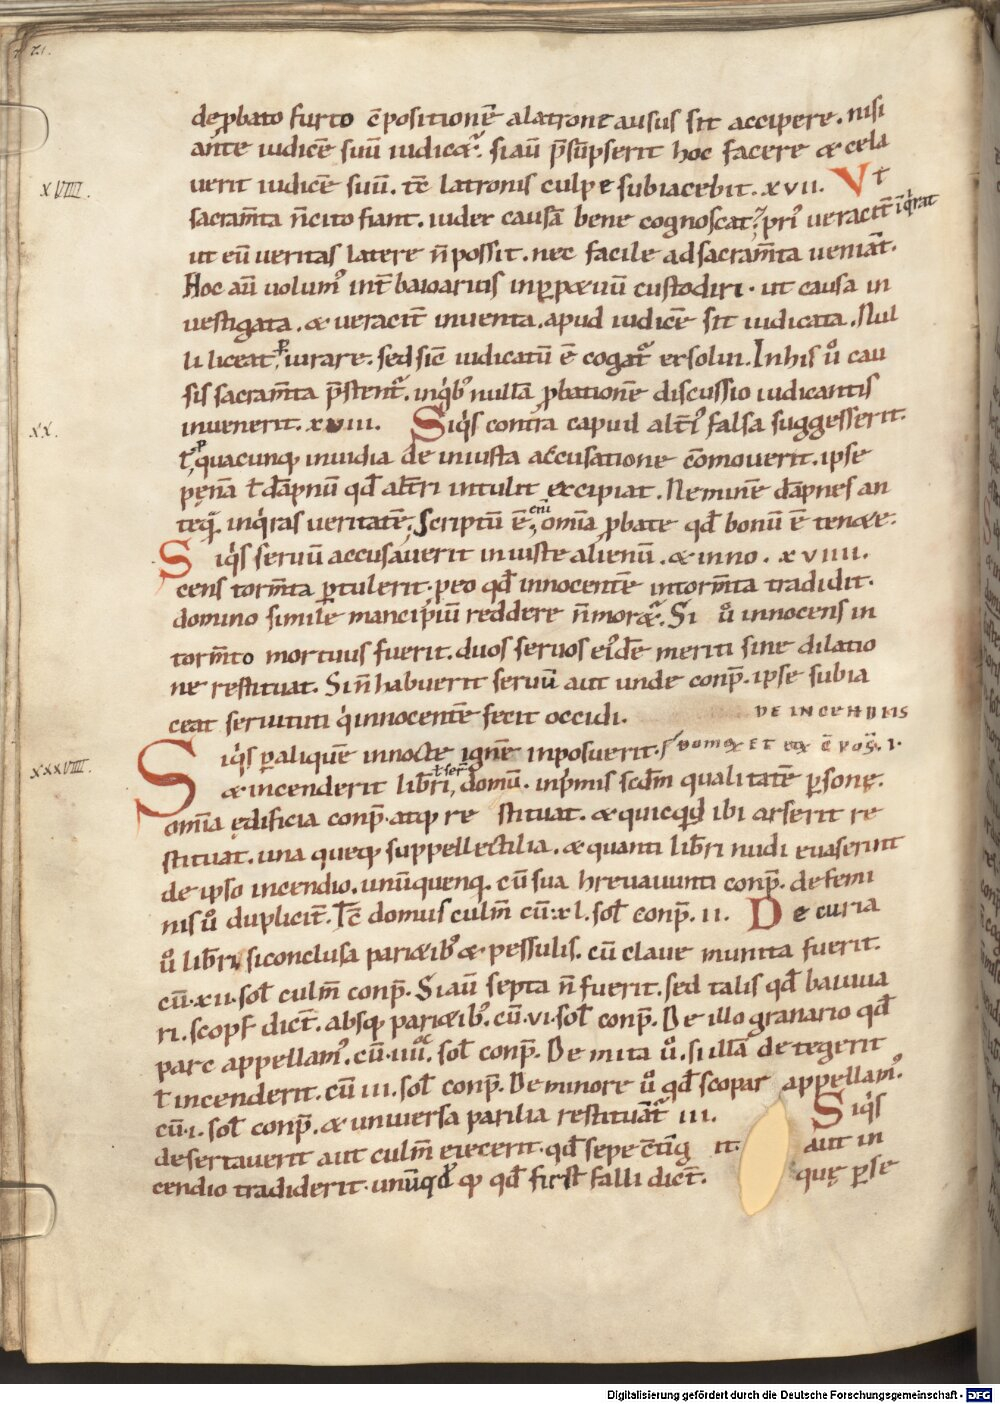 21.
de ꝓbato furto c̄positionē a latrone ausus sit accipere. nisi
ante iudicē suū iudicet᷑. si aū p̄sūpserit hoc facere & cela
XVIIII.
uerit iudicē suū. tc̄ latronis culpe subiacebit. xvii. Vt
sacram̄ta n̄ cito fiant. iudex causā bene cognoscat; pri᾽ ueracit̄ īq̇rat
ut eū ueritas latere n̄ possit. nec facile ad sacram̄ta ueniāt.
Hoc aū uolum᾽ int̄ baioarius in ꝑpetuū custodiri. ut causa in
uestigata. & ueracit̄ inuenta. apud iudicē sit iudicata. Nul
li liceat p̄iurare. sed sic̄ iudicatū ē cogat᷑ exsolui. In his u͛ cau
sis sacram̄ta p̄stent᷑. in q̇b᾽ nullā ꝓbationē discussio iudicantis
inuenerit. xviii. Siq̇s contra capud alt̄i᾽ falsa suggesserit.
XX.
ł ꝓ quacunq; inuidia de iniusta accusatione cōmouerit. ipse
pęnā ł dāpnū qd̄ alt̄ri intulit excipiat. Neminē dāpnes an
teq̄. inq̇ras ueritatē; Scriptū ē. enī omīa ꝓbate qd̄ bonū ē tenete:
Siq̇s seruū accusauerit iniuste alienū. & inno. xviiii.
cens torm̄ta ꝑtulerit. ꝓ eo qd̄ innocentē in torm̄ta tradidit.
domino simile mancipiū reddere n̄ moret᷑. Si u͛ innocens in
torm̄to mortuus fuerit. duos seruos ei᾽dē meriti sine dilatio
ne restituat. Si n̄ habuerit seruū aut unde conp̄. ipse subia
ceat seruituti q̇ innocentē fecit occidi. DE INCENDIIS
Siq̇s ꝑ aliquē in nocte ignē inposuerit. DOMOꝜ ET EOꝜ C̄POS̄. I.
XXXVIIII.
& incenderit lib̄ri ł ser̄ domū. inṗmis scdm̄ qualitatē ꝑsonę.
omīa ędificia conp̄. atq; restituat. & quicq̇d ibi arserit re
stituat. una queq; suppellectilia. & quanti lib̄ri nudi euaserint
de ipso incendio. unūquenq;. cū sua hreuauunti conp̄. de femi
nis u͛ duplicit̄. Tc̄ domus culm̄ cū. xl. soł conp̄. ii. De curia
u͛ lib̄ri. si conclusa parietib᾽ & pessulis. cū claue munita fuerit.
cū. xii. soł culm̄ conp̄. Si aū septa n̄ fuerit. sed talis qd̄ bauuua
ri. scopf dict̄. absq; parietib᾽. cū. vi. soł conp̄. De illo granario qd̄
parc appellam᾽. cū. iiii. soł conp̄. De mita u͛. si illā detegerit
ł incenderit. cū iii. soł conp̄. De minore u͛ qd̄ scopar appellam᾽.
cū. i. soł conp̄. & uniuersa parilia restituāt iii. Siq̇s
desertauerit aut culm̄ eiecerit. qd̄ sepe c̄tīgit. aut in
cendio tradiderit. unūqd̄q; qd̄ first falli dict̄. quę ꝑ se
Digitalisierung gefördert durch die Deutsche Forschungsgemeinschaft - DFG